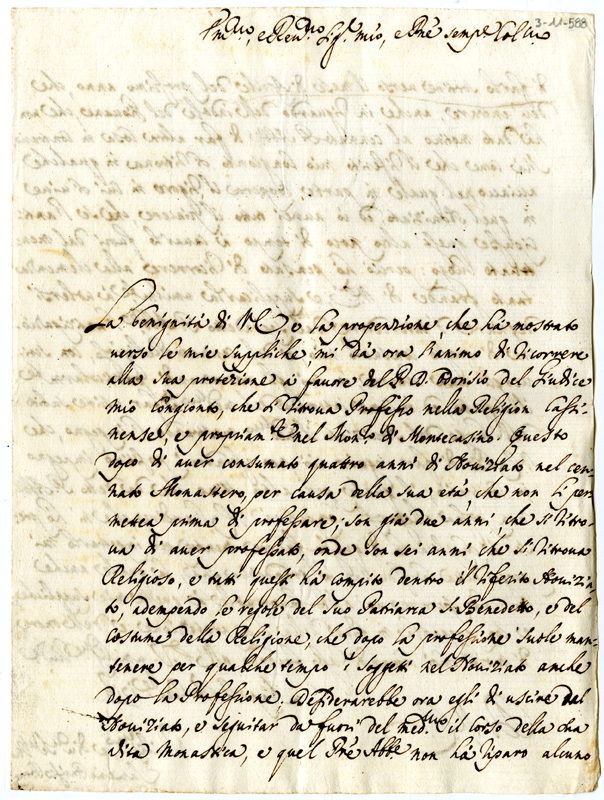 3-11-588
Ill.mo, e Rev.mo Sig.r mio, e P̃ne semp.e Col.mo
La benignità di VE, e la propenzione, che hà mostrato
verso le mie suppliche mi dà ora l'animo di ricorrere
alla sua protezione à favore del P. D. Dorisio del Giudice
mio Congionto, che si ritrova Professo nella Religion Cassi-
nense, e propriam.te nel Mon.ro di Montecasino. Questo
dopo di aver consumato quattro anni di Noviziato nel cen-
nato Monastero, per causa della sua età, che non li per
metteva prima di professare; son già due anni, che si ritro-
va di aver professato, onde son sei anni che si ritrova
Religioso, e tutti questi hà compito dentro il riferito Novizia-
to, adempendo le regole del suo Patriarca S. Benedetto, e del
costume della Religione, che dopo la professione suole man-
tenere per qualche tempo i soggetti nel Noviziato anche
dopo la Professione. Desiderarebbe ora egli di uscire dal
Noviziato, e seguitar da fuori del med.mo il corso della
vita monastica, e quel P̃re Abb̃e non hà riparo alcuno